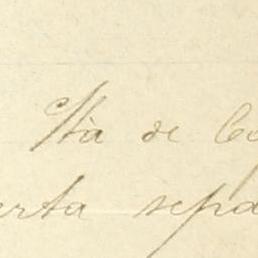 Sta de Co
erta sepa